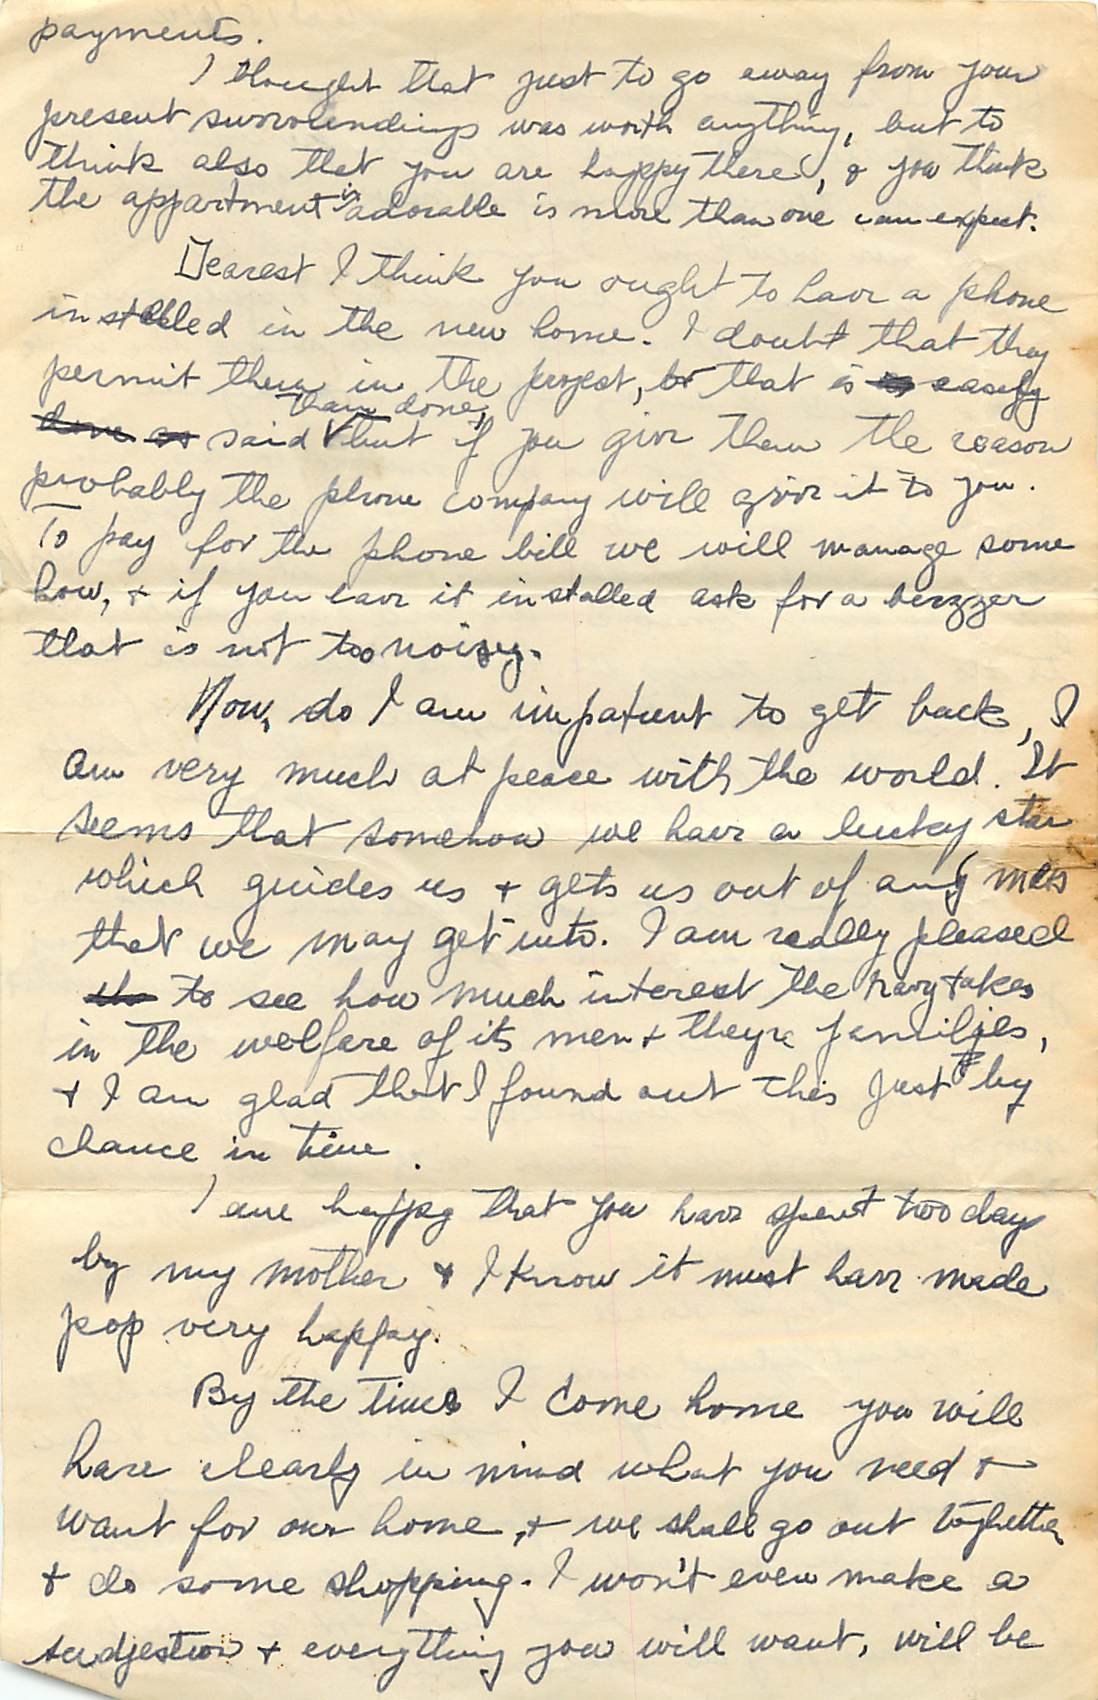 payments.
I thought that just to go away from your
present surroundings was worth anything, but to
think also that you are happy there, & you think
the appartment is adorable is more than one can expect.
Dearest I think you ought to have a phone
installed in the new home. I doubt that they
permit them in the project, but that is easily
said than done, but if you give them the reason
probably the phone company will give it to you.
To pay for the phone bill we will manage some
how, & if you have it installed ask for a buzzer
that is not too noisy.
Now, do I am impatient to get back, I
am very much at peace with the world. It
seems that somehow we have a lucky star
which guides us & gets us out of any mess
that we may get into. I am really pleased
to see how much interest the navy takes
in the welfare of its men & theyre families,
& I am glad that I found out this just by
chance in time.
I am happy that you have spent two days
by my mother & I know it must have made
pop very happy.
By the time I come home you will
have clearly in mind what you need &
want for our home, & we shall go out toghetter
& do some shopping. I won't even make a
sudjestion & everything you will want, will be